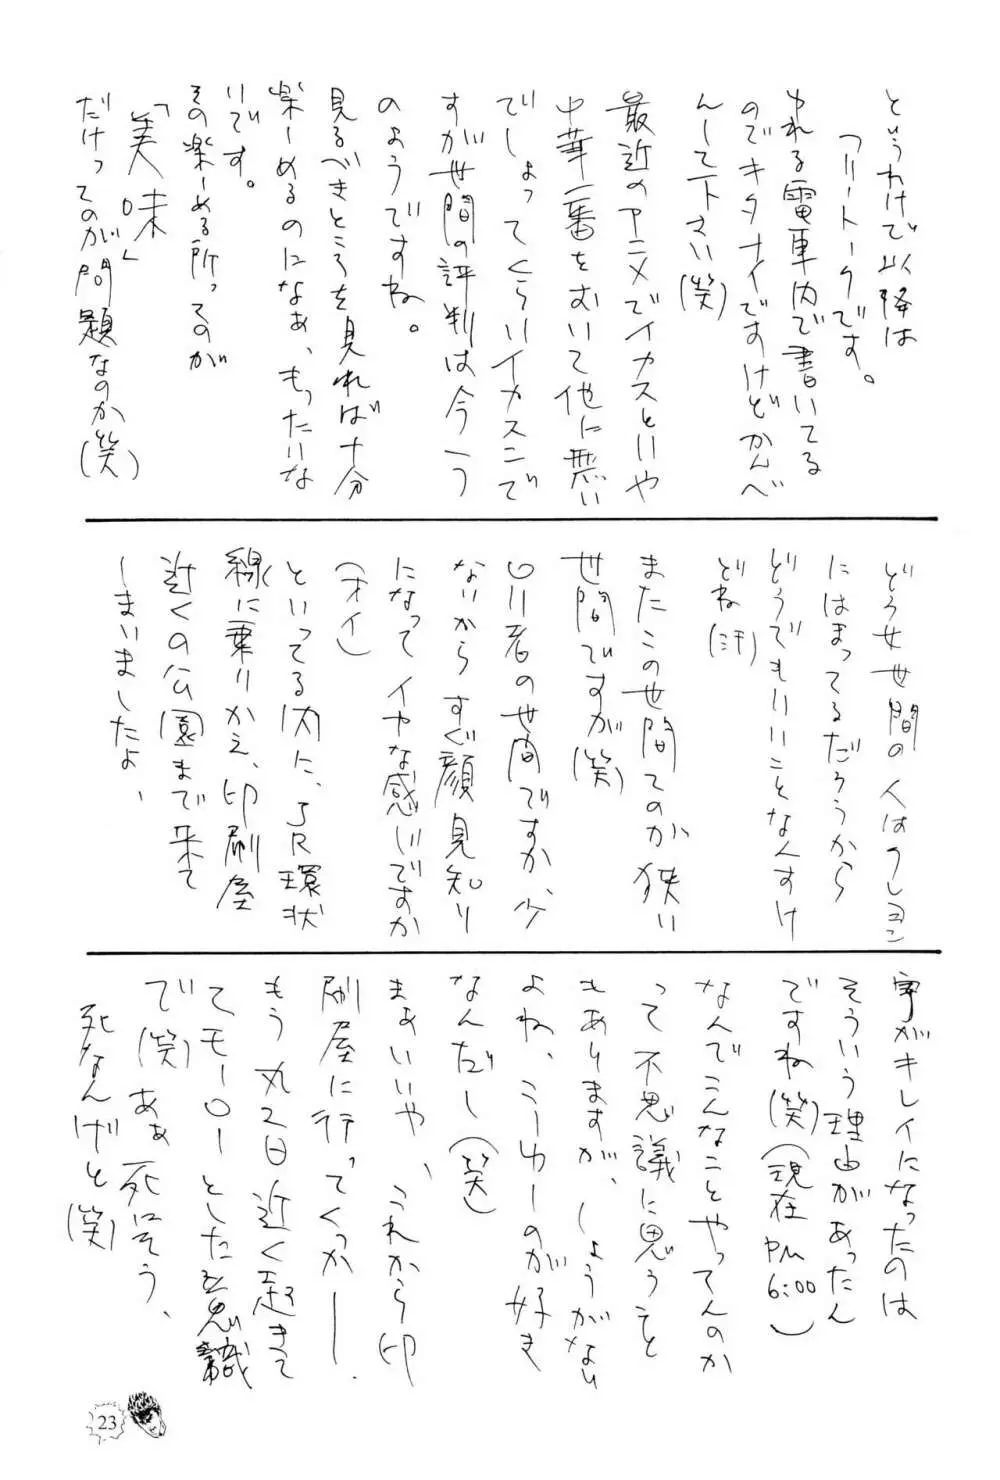 というわけで以降は
フリートークです。
ゆれる電車内で書いてる
のでキタナイですけどかんべ
んして下さい(笑)
最近のアニメでイカスといや
中華一番をおいて他に無い
でしょってくらいイカスンで
すが世間の評判は今一つ
のようですね。
見るべきところを見れば十分
楽しめるのになぁ、もったいな
いです。
その楽しめる所ってのが
「美味」
だけってのが問題なのか(笑)
どうせ世間の人はクレヨン
にはまってるだろうから
どうでもいいことなんすけ
どね(汗)
またこの世間てのが狭い
世間ですが(笑)
同人者の世間ですか、少
ないからすぐ顔見知り
になってイヤな感じですか
(オイ)
といってる内に、JR環状
線に乗りかえ、印刷屋
近くの公園まで来て
しまいましたよ、
字がキレイになったのは
そういう理由があったん
ですね(笑)(現在PM
6:00)
なんでこんなことやってんのか
って不思議に思うこと
もありますが、しょうがない
よね、こーゆーのが好き
なんだし(笑)
まぁいいや、これから印
刷屋に行ってくっかー。
もう丸2日近く起きて
てモーローとした意識
で(笑)あぁ死にそう、
死なんけど(笑)
23